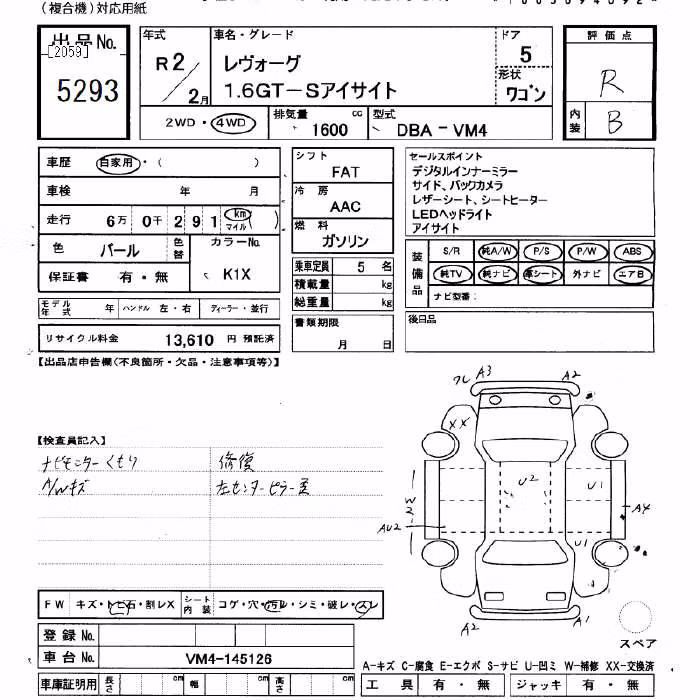 （複合機）対応用紙
出品No.
[2059]
5293
年式
R2/2月
車名・グレード
レヴォーグ
1.6GT-Sアイサイト
ドア
5
形状
ワゴン
2WD・4WD
排気量
1600 cc
型式
DBA-VM4
評価点
R
内装
B
車歴 自家用・（ ）
車検 年 月
走行 6万 0千 2 9 1 km マイル( )
色 パール 色替
カラーNo.
K1X
保証書 有・無
モデル年式 年 ハンドル 左・右 ディーラー・並行
リサイクル料金 13,610 円 預託済
シフト
FAT
冷房
AAC
燃料
ガソリン
乗車定員 5 名
積載量 kg
総重量 kg
書類期限
月 日
セールスポイント
デジタルインナーミラー
サイド、バックカメラ
レザーシート、シートヒーター
LEDヘッドライト
アイサイト
装備品
S/R 純A/W P/S P/W ABS
純TV 純ナビ 革シート 外ナビ エアB
ナビ型番：
後日品
【出品店申告欄(不良箇所・欠品・注意事項等)】
【検査員記入】
ナビモニターくもり
A/Wキズ
修復
左センターピラー歪
フレ A3 A2
XX
U2
U1
W2
AU2
A4
U1
A2 A1
スペア
FW キズ・トビ石・割レX
シート内装 コゲ・穴・汚レ・シミ・破レ・スレ
登録No.
車台No. VM4-145126
車庫証明用 長さ cm 幅 cm 高さ cm
A-キズ C-腐食 E-エクボ S-サビ U-凹ミ W-補修 XX-交換済
工具 有・無 ジャッキ 有・無